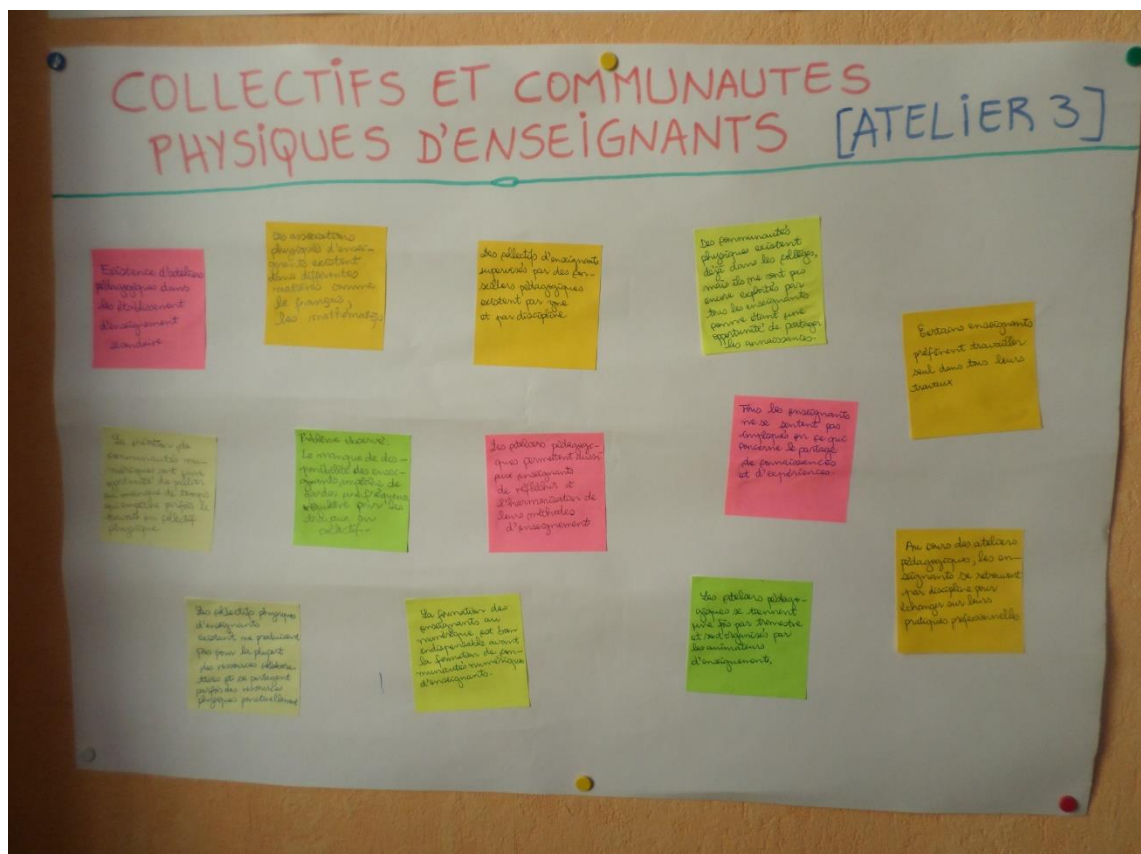 COLLECTIFS ET COMMUNAUTES
PHYSIQUES D'ENSEIGNANTS [ATELIER 3]
Existence d'ateliers
pédagogiques dans
les établissement
d'enseignement
secondaire
Des associations
physiques d'ensei-
gnants existent
dans différentes
matières comme
le français,
les mathématiqs
Des collectifs d'enseignants
supervisés par des con-
seillers pédagogiques
existent par zone
et par discipline
Des communautés
physiques existent
déjà dans les collèges,
mais ils ne sont pas
encore exploités par
tous les enseignants
comme étant une
opportunité de partager
les connaissances.
Certains enseignants
préfèrent travailler
seul dans tous leurs
travaux
La création de
communautés nu-
mériques sont une
opportunité de palier
au manque de temps
qui empêche parfois le
travail en collectif
physique
Problème observé:
Le manque de dis-
ponibilité des ensei-
gnants
régulière pour les
travaux en
collectif
Les ateliers pédagogi-
ques permettent aussi
aux enseignants
de réfléchir et
d'harmonisation de
leurs méthodes
d'enseignement
Tous les enseignants
ne se sentent pas
impliqués en ce qui
concerne le partage
de connaissances
et d'expériences
Au cours des ateliers
pédagogiques, les en-
seignants se retrouvent
par discipline pour
échanger sur leurs
pratiques professionnelles
Les collectifs physiques
d'enseignants
existant ne produisent
pas pour la plupart
des ressources
et se partagent
parfois des ressources
physiques
La formation des
enseignants au
numérique est
indispensable avant
la formation de com-
munautés numériques
d'enseignants.
Les ateliers pédago-
giques se tiennent
une fois par trimestre
et sont organisés par
les animateurs
d'enseignements.